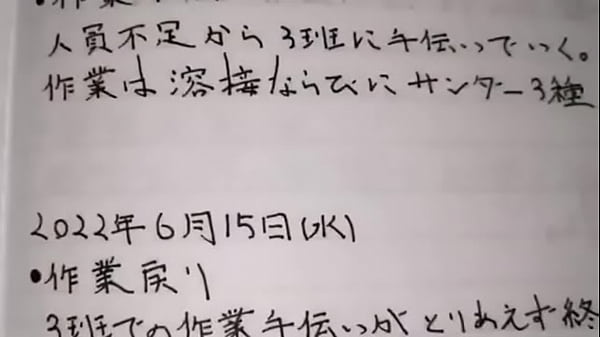 ・作業
人員不足から3班に手伝いっでいく。
作業は溶接ならびにサンダー3種
2022年6月15日(水)
・作業戻り
3班での作業手伝いがとりあえず終